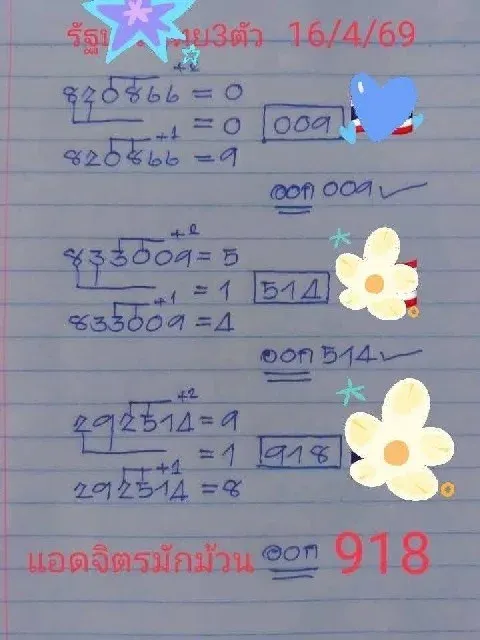 3ตัว 16/4/69
+2
820866 = 0
= 0 009
+1
820866 = 9
ออก 009 ✓
+2
833009 = 5
= 1 514
+1
833009 = 4
ออก 514 ✓
+2
292514 = 9
= 1 918
+1
292514 = 8
แอดจิตรมักม้วน ออก 918